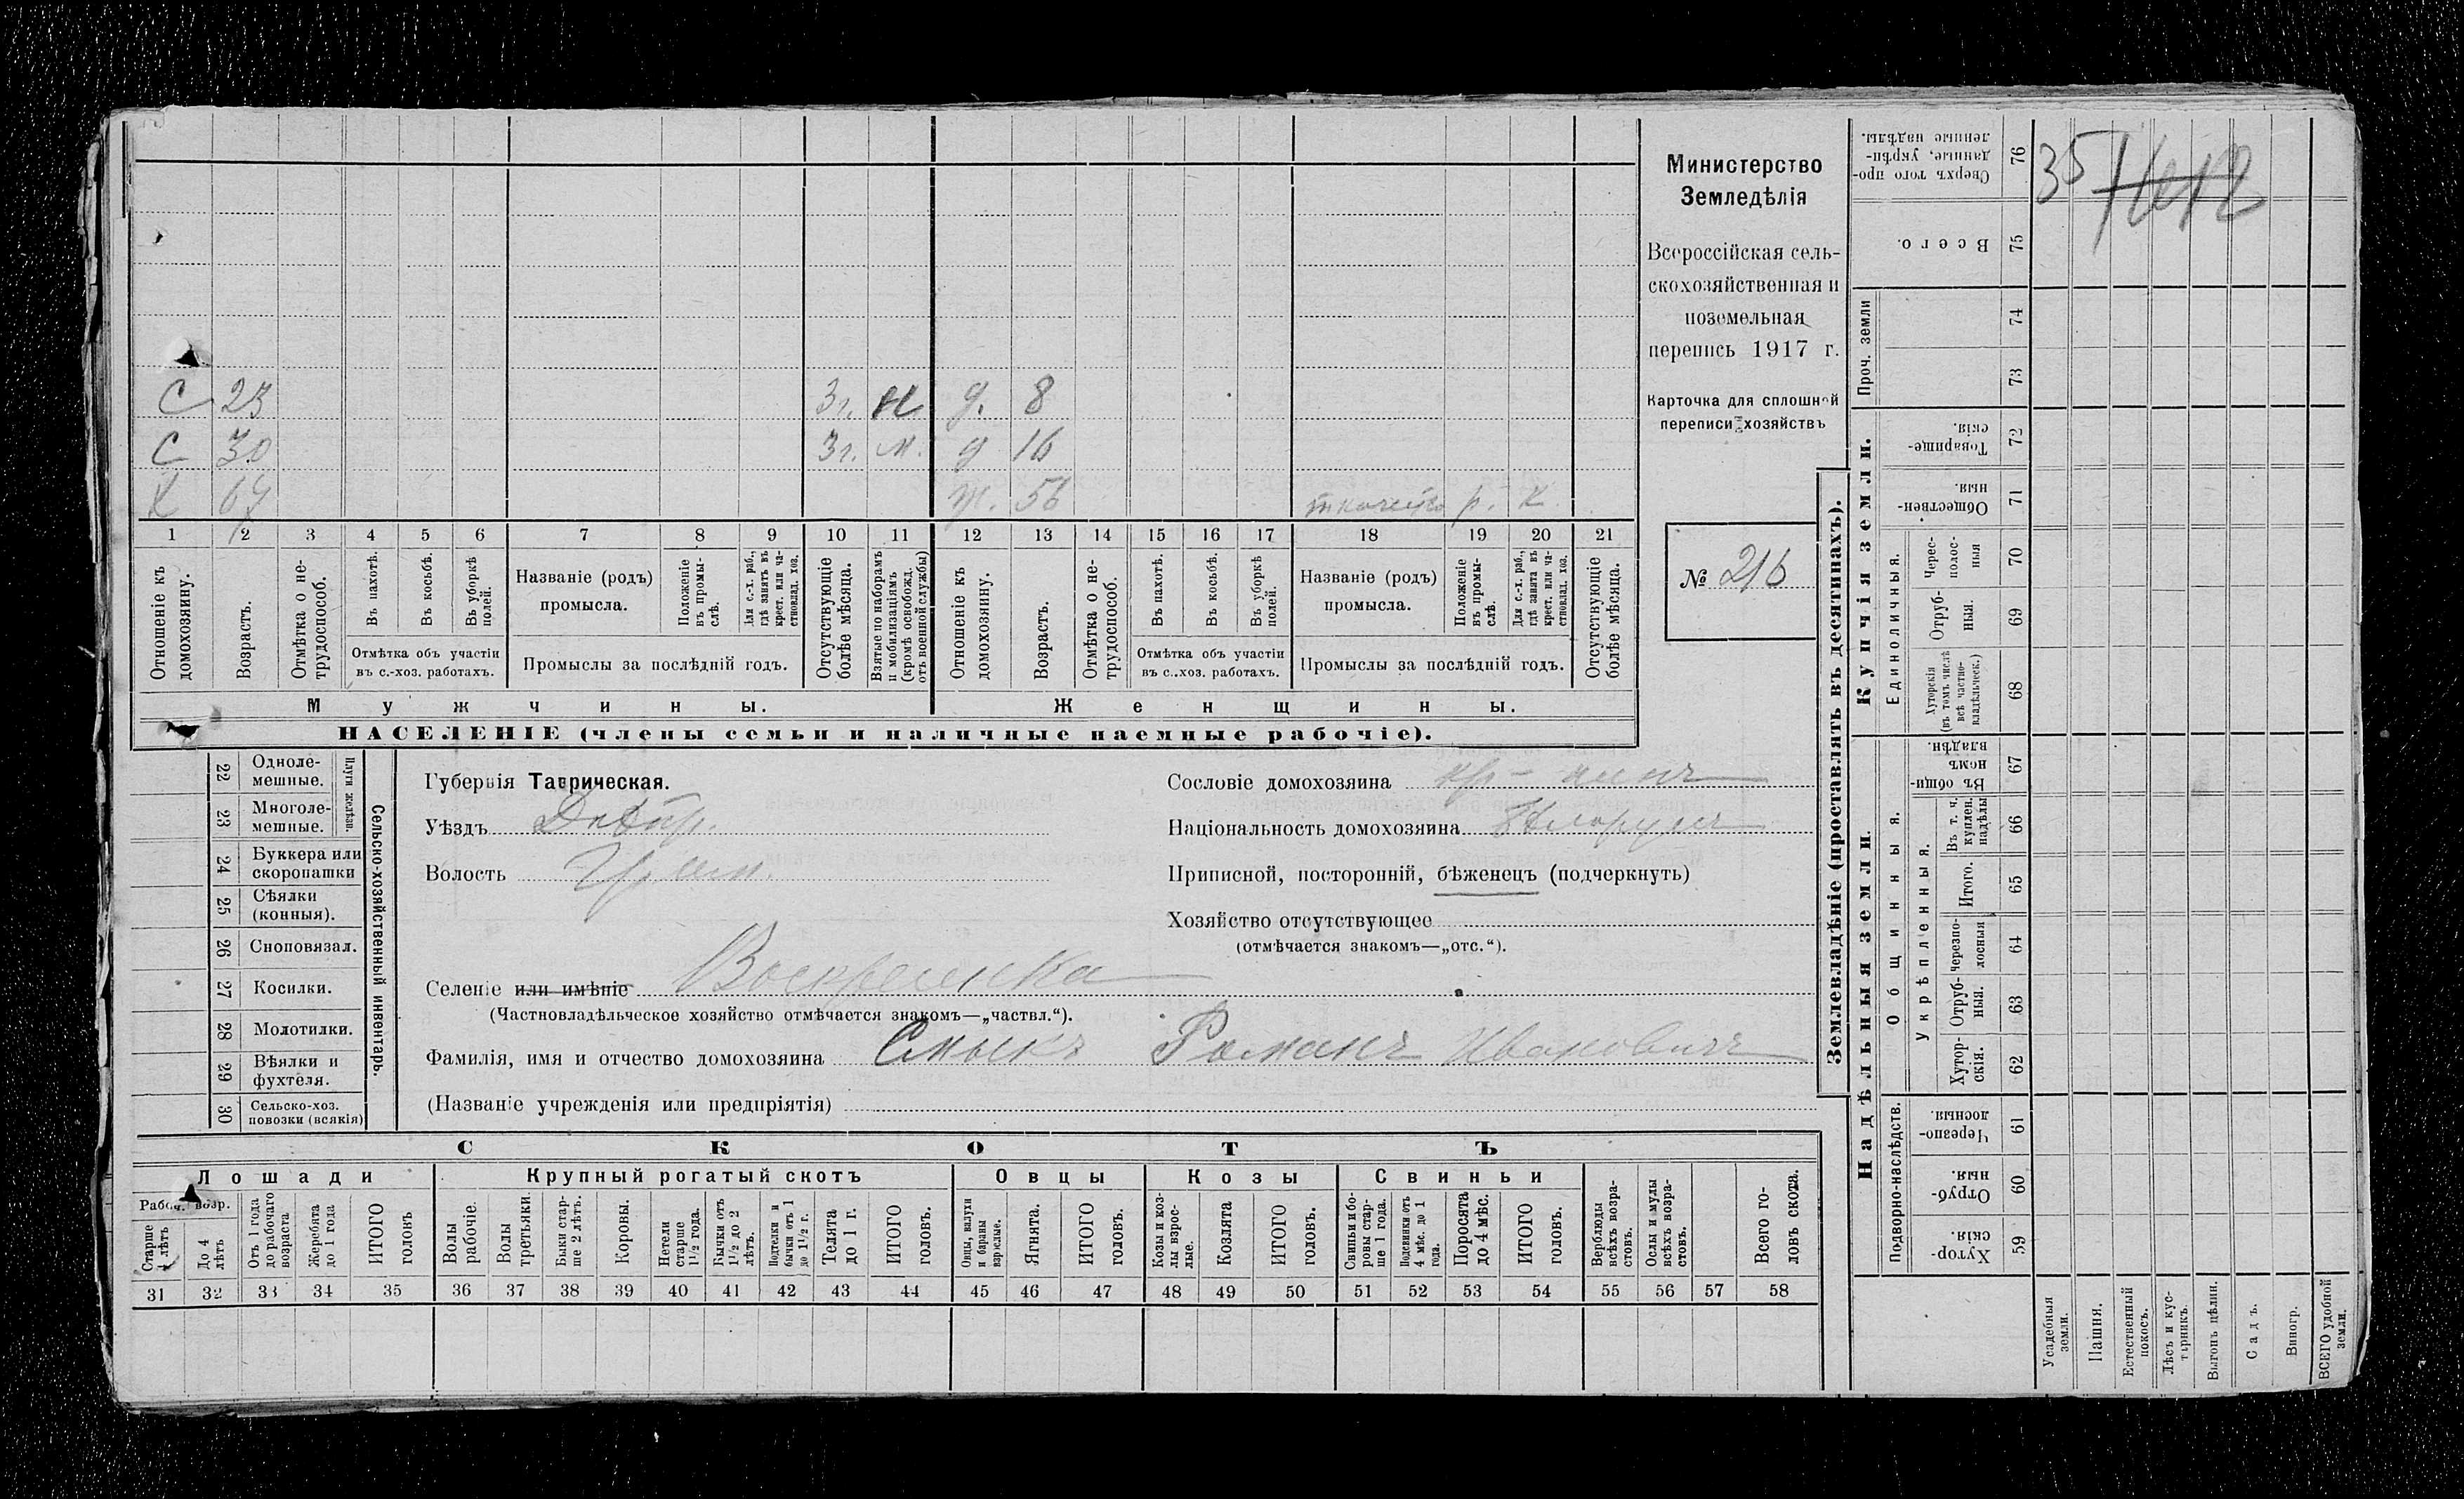 С 23 3г. м д. 8
С 30 3г. м. д 16
Х 67 ж. 56 ткачество р. К
1 2 3 4 5 6 7 8 9 10 11 12 13 14 15 16 17 18 19 20 21
Отношеніе къ домохозяину.
Возрастъ.
Отмѣтка о не-
трудоспособ.
Въ пахотѣ.
Въ косьбѣ.
Въ уборкѣ полей.
Отмѣтка объ участіи
въ с.-хоз. работахъ.
Названіе (родъ)
промысла.
Положеніе въ промы-
слѣ.
Для с.-х. раб.,
гдѣ занятъ въ
крест. или ча-
стновлад. хоз.
Промыслы за послѣдній годъ.
Отсутствующіе
болѣе мѣсяца.
Взятые по наборамъ
и мобилизаціямъ
(кромѣ освобожд.
отъ военной службы)
Отношеніе къ
домохозяину.
Возрастъ.
Отмѣтка о не-
трудоспособ.
Въ пахотѣ.
Въ косьбѣ.
Въ уборкѣ
полей.
Отмѣтка объ участіи
въ с..хоз. работахъ.
Названіе (родъ)
промысла.
Положеніе
въ промы-
слѣ.
Для с.-х. раб.,
гдѣ занята въ
крест. или ча-
стновлад. хоз.
Промыслы за послѣдній годъ.
Отсутствующіе
болѣе мѣсяца.
Мужчины.
Женщины.
НАСЕЛЕНІЕ (члены семьи и наличные наемные рабочіе).
Министерство
Земледѣлія
Всероссійская сель-
скохозяйственная и
поземельная
перепись 1917 г.
Карточка для сплошной
переписи хозяйствъ
№ 216
22 Одноле-
мешные.
23 Многоле-
мешные.
Плуги желѣзн.
24 Буккера или
скоропашки
25 Сѣялки
(конныя).
26 Сноповязал.
27 Косилки.
28 Молотилки.
29 Вѣялки и
фухтеля.
30 Сельско-хоз.
повозки (всякія)
Сельско-хозяйственный инвентарь.
Губернія Таврическая.
Уѣздъ Днѣпр.
Волость
Селеніе или имѣніе Воскресенка
(Частновладѣльческое хозяйство отмѣчается знакомъ—„частвл.“).
Фамилія, имя и отчество домохозяина Смыкъ Романъ Ивановичъ
(Названіе учрежденія или предпріятія)
Сословіе домохозяина кр-нинъ
Національность домохозяина
Приписной, посторонній, бѣженецъ (подчеркнуть)
Хозяйство отсутствующее
(отмѣчается знакомъ—„отс.“).
СКОТЪ
Лошади
Рабоч. возр.
Старше 4 лѣтъ
До 4 лѣтъ
Отъ 1 года
до рабочаго
возраста
Жеребята
до 1 года
ИТОГО
головъ
Крупный рогатый скотъ
Волы
рабочіе.
Волы
третьяки.
Быки стар-
ше 2 лѣтъ.
Коровы.
Нетели
старше
1½ года.
Бычки отъ
1½ до 2
лѣтъ.
Подтелки и
бычки отъ 1
до 1½ г.
Телята
до 1 г.
ИТОГО
головъ.
Овцы
Овцы, валухи
и бараны
взрослые.
Ягнята.
ИТОГО
головъ.
Козы
Козы и коз-
лы взрос-
лые.
Козлята
ИТОГО
головъ.
Свиньи
Свиньи бо-
ровы стар-
ше 1 года.
Подсвинки отъ
4 мѣс. до 1
года.
Поросята
до 4 мѣс.
ИТОГО
головъ.
Верблюды
всѣхъ возра-
стовъ.
Ослы и мулы
всѣхъ возра-
стовъ.
Всего го-
ловъ скота.
31 32 33 34 35 36 37 38 39 40 41 42 43 44 45 46 47 48 49 50 51 52 53 54 55 56 57 58
Землевладѣніе (проставлять въ десятинахъ).
Сверхъ того про-
данные, укрѣп-
ленные надѣлы. 76 35 Нет
Всего. 75
Проч. земли
74
73
Купчія земли.
Товарище-
скія. 72
Обществен-
ныя. 71
Единоличныя.
Черес-
полос-
ныя 70
Отруб-
ныя. 69
Хуторскія
(въ томъ числѣ
всѣ частно-
владѣльческ.) 68
Надѣльныя земли
Общинныя.
Въ общи-
номъ
владѣн. 67
Укрѣпленныя.
Въ т. ч.
куплен.
надѣлы 66
Итого. 65
Черезпо-
лосныя 64
Отруб-
ныя. 63
Хутор-
скія. 62
Подворно-наслѣдств.
Черезпо-
лосныя. 61
Отруб-
ныя. 60
Хутор-
скія. 59
Усадебныя
земли.
Пашня.
Естественный
покосъ.
Лѣсъ и кус-
тарникъ.
Выгонъ цѣлин.
Садъ.
Виногр.
ВСЕГО удобной
земли.